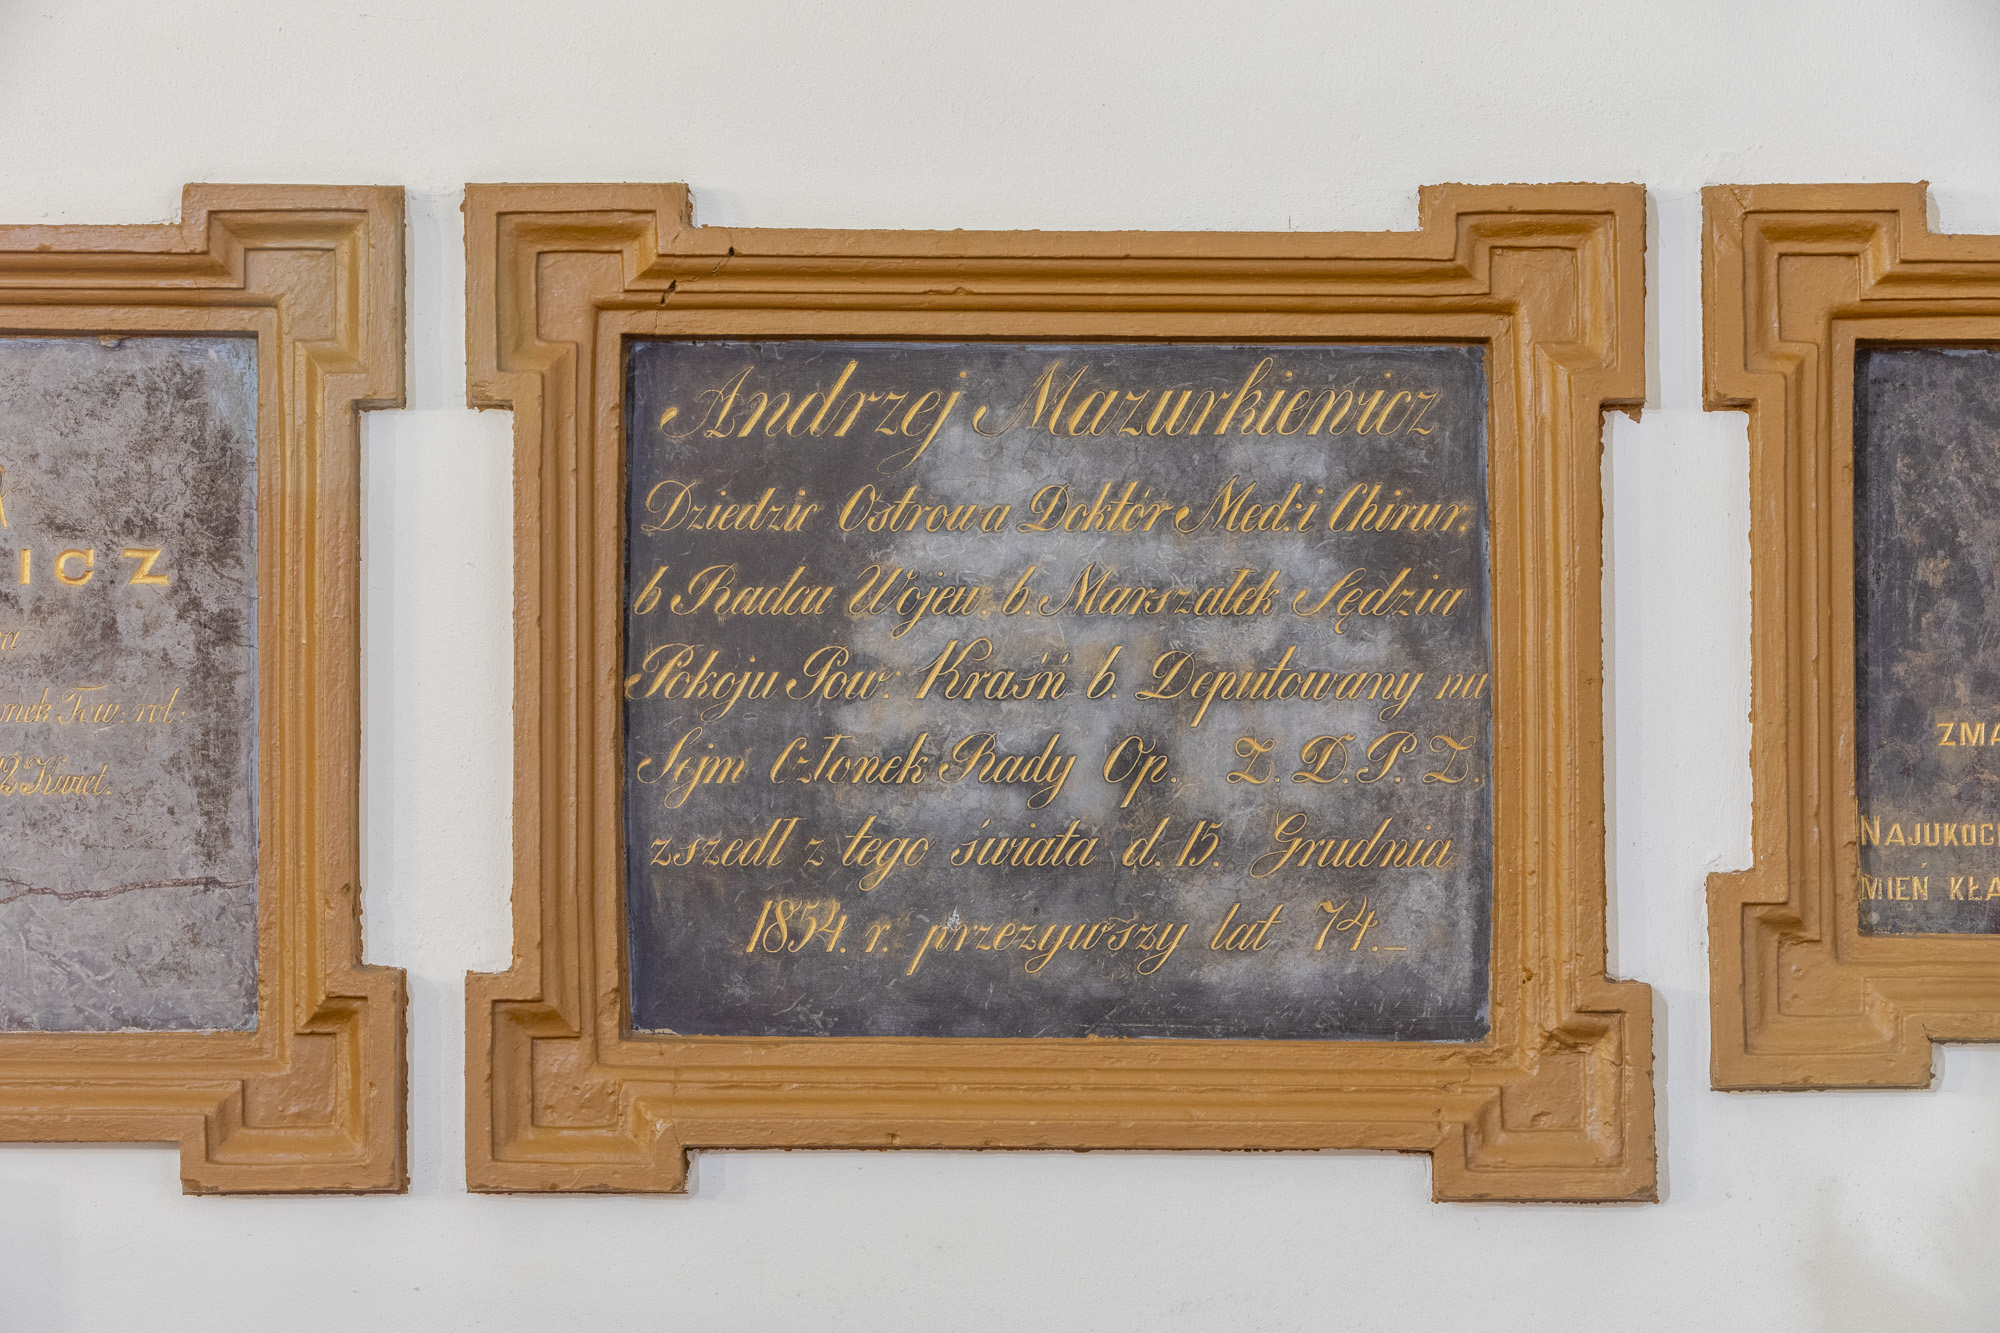 ICZ
nek Tow: rol:
12 Kwiet.
Andrzej Mazurkiewicz
Dziedzic Ostrowa Doktór Med: i Chirur:
b Radca Wojew. b. Marszałek Sędzia
Pokoju Pow: Kraśń b. Deputowany na
Sejm Członek Rady Op. Z. D. P. Z.
zszedł z tego świata d. 15. Grudnia
1854. r. przezywszy lat 74._
ZMA
NAJUKOCH
MIEŃ KŁA